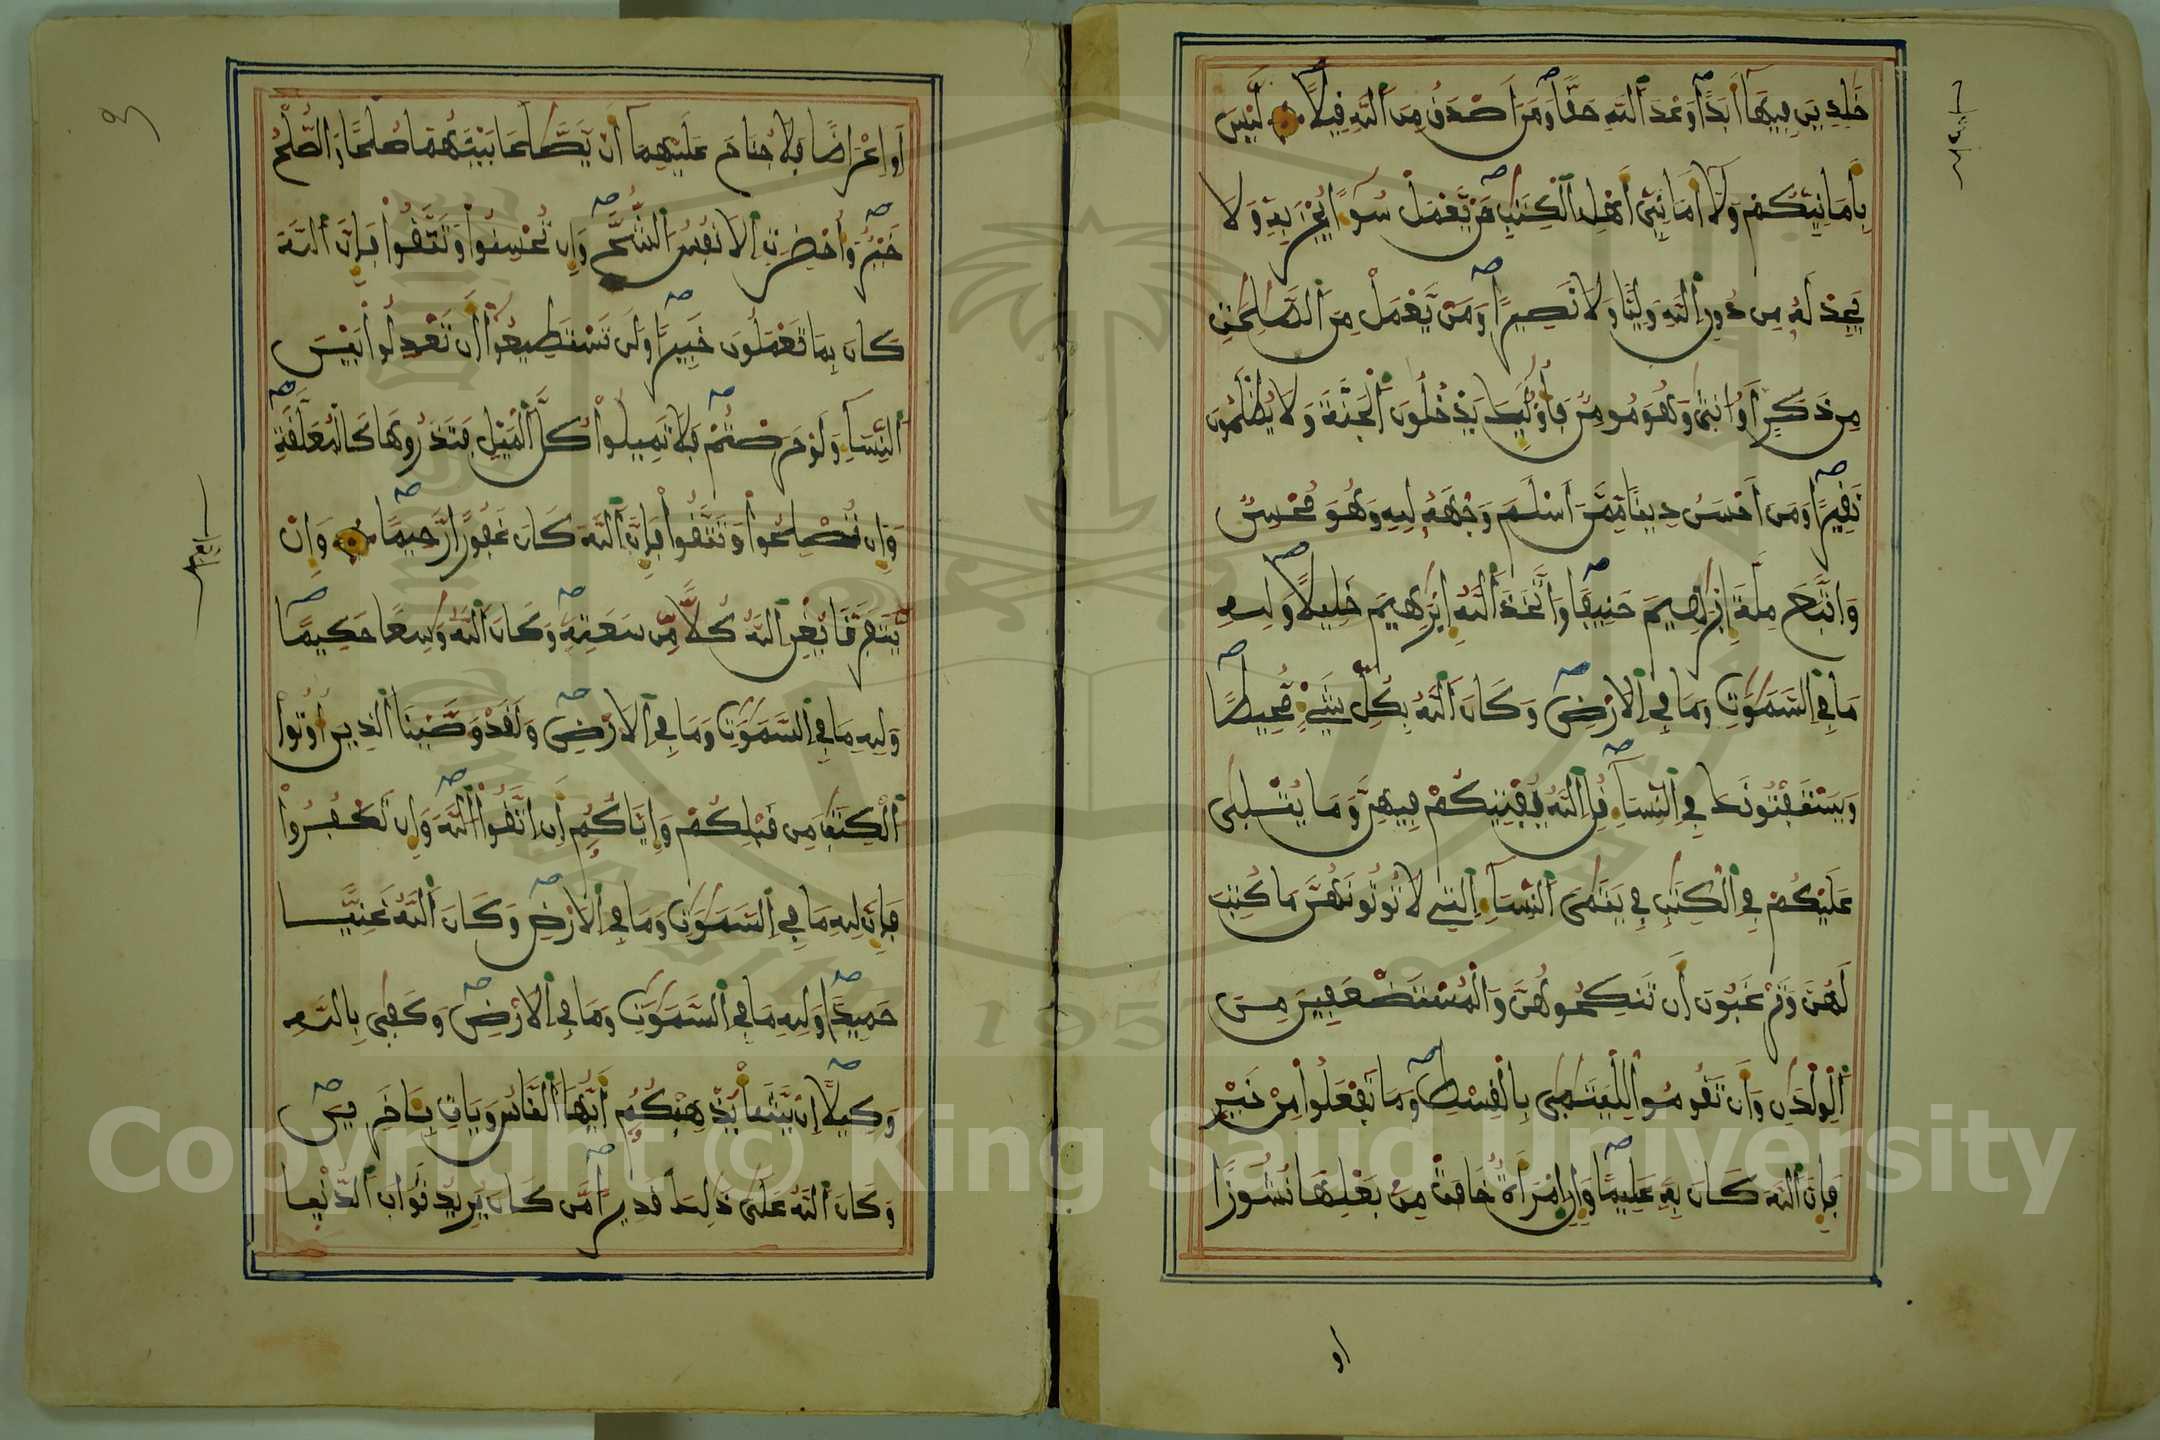 خلدين فيها أبدا وعد الله حقا ومن اصدق من الله قيلا ليس
بأمانيكم ولا أماني أهل الكتب من يعمل سوءا يجز به ولا
يجد له من دون الله وليا ولا نصيرا ومن يعمل من الصلحت
من ذكر او انثى وهو مومن فأولئك يدخلون الجنة ولا يظلمون
نقيرا ومن احسن دينا ممن اسلم وجهه لله وهو محسن
واتبع ملة إبرهيم حنيفا واتخذ الله إبرهيم خليلا ولله
ما في السموت وما في الارض وكان الله بكل شيء محيطا
ويستفتونك في النساء قل الله يفتيكم فيهن وما يتلى
عليكم في الكتب في يتمى النساء التي لا توتونهن ما كتب
لهن وترغبون أن تنكحوهن والمستضعفين من
الولدن وأن تقوموا لليتمى بالقسط وما تفعلوا من خير
فإن الله كان به عليما وإن امرأة خافت من بعلها نشوزا
او
أو اعراضا فلا جناح عليهما أن يصلحا بينهما صلحا والصلح
خير وأحضرت الانفس الشح وإن تحسنوا وتتقوا فإن الله
كان بما تعملون خبيرا ولن تستطيعوا أن تعدلوا بين
النساء ولو حرصتم فلا تميلوا كل الميل فتذروها كالمعلقة
وإن تصلحوا وتتقوا فإن الله كان غفورا رحيما وإن
يتفرقا يغن الله كلا من سعته وكان الله وسعا حكيما
ولله ما في السموت وما في الارض ولقد وصينا الذين أوتوا
الكتب من قبلكم وإياكم أن اتقوا الله وإن تكفروا
فإن لله ما في السموت وما في الارض وكان الله غنيا
حميدا ولله ما في السموت وما في الارض وكفى بالله
وكيلا إن يشأ يذهبكم أيها الناس ويات بـاخرين
وكان الله على ذلك قديرا من كان يريد ثواب الدنيا
Copyright © King Saud University
1957